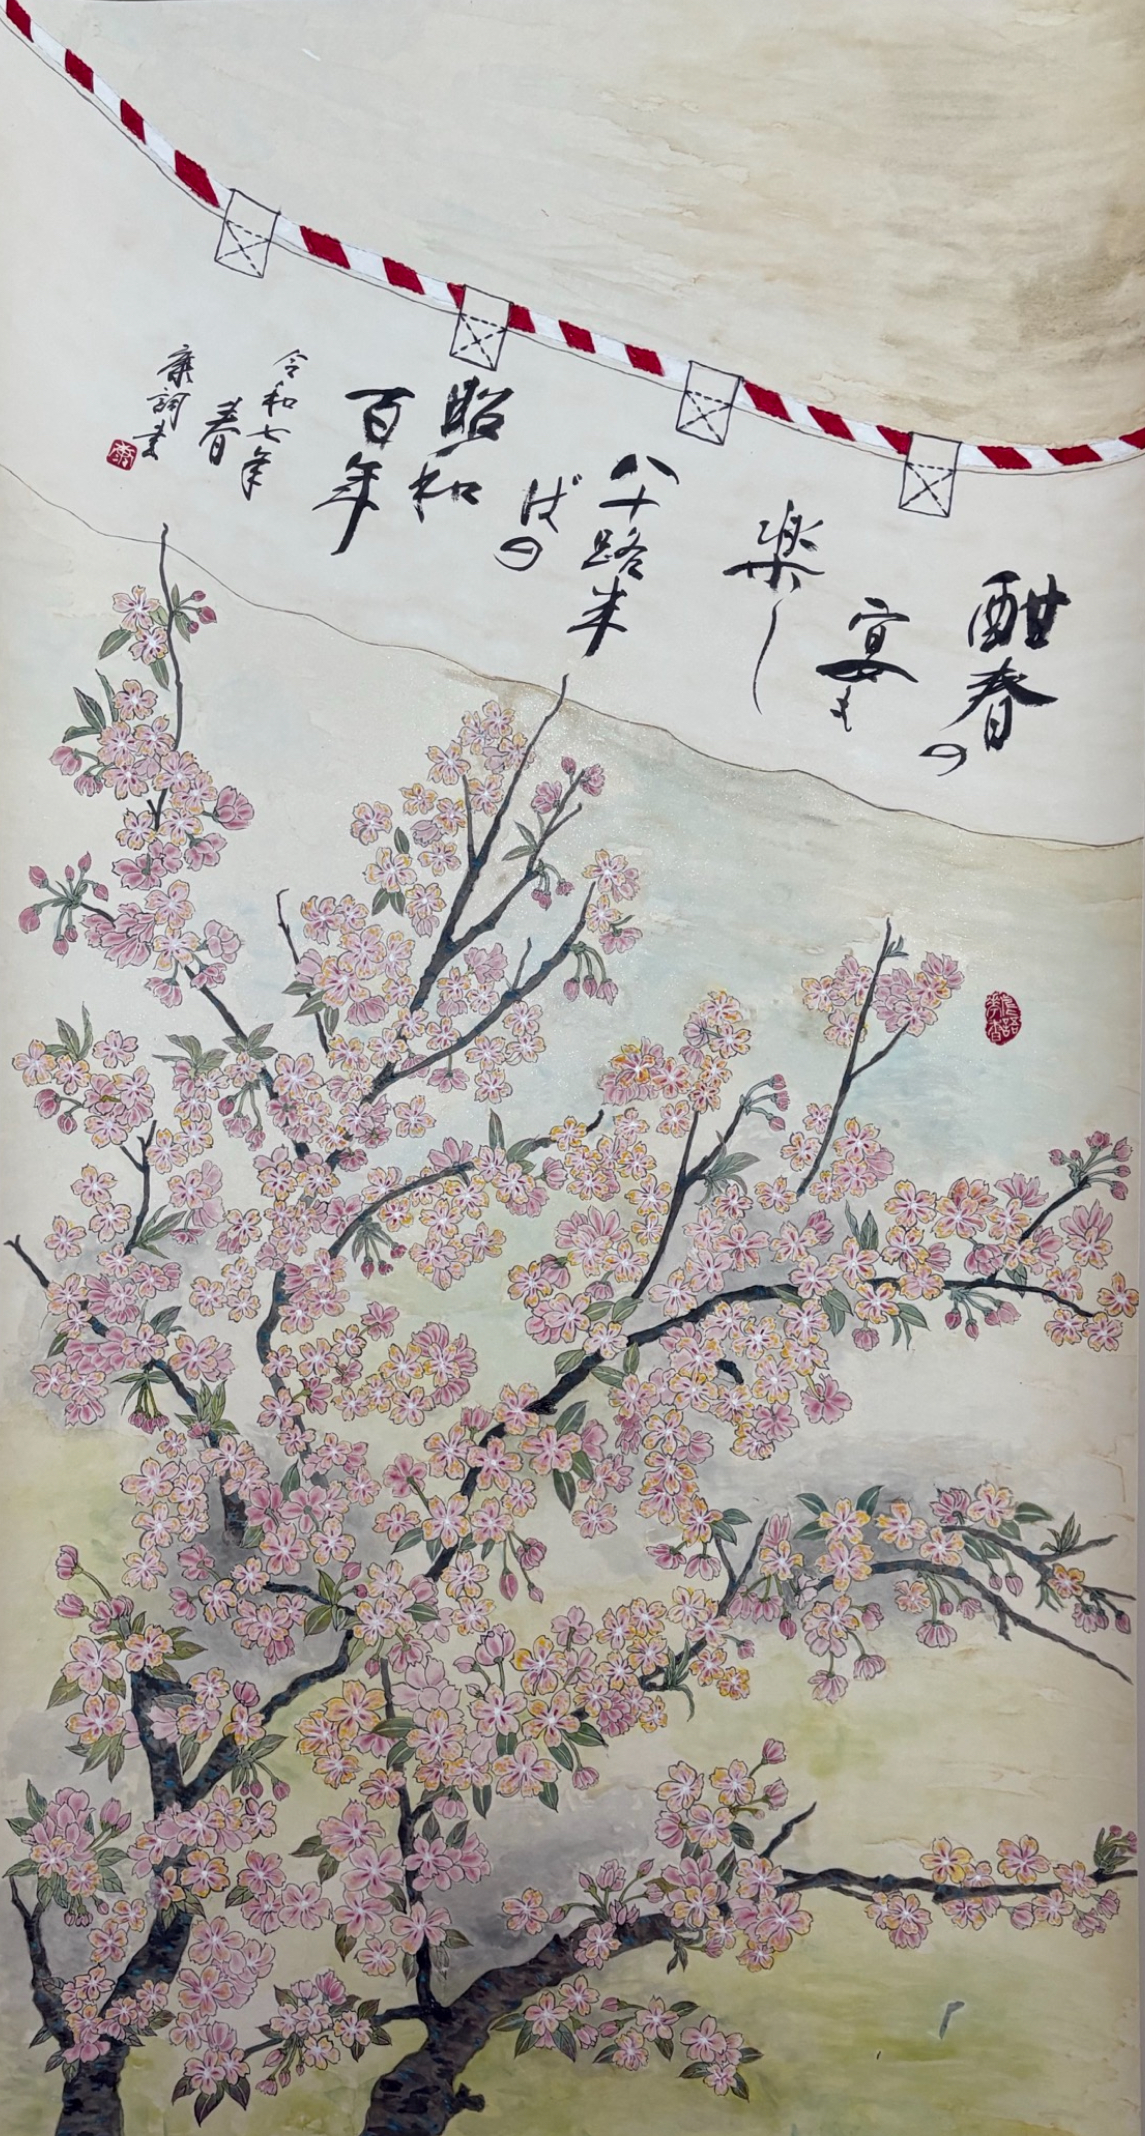 酣春の
宴も
楽し
八十路半
ばの
昭和
百年
令和七年
春
康詞書